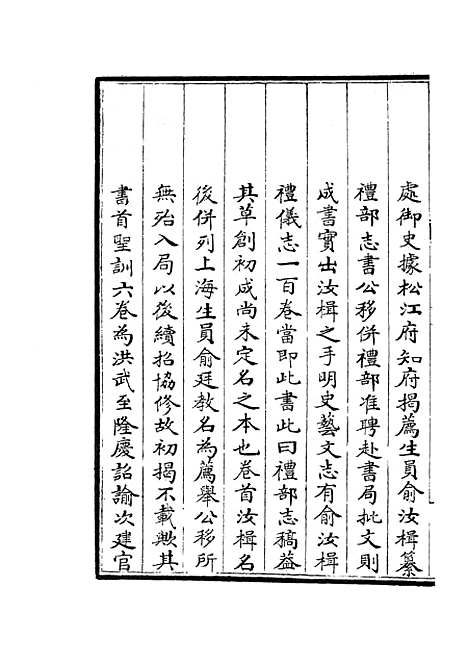 處御史據松江府知府揭薦生員俞汝楫纂
禮部志書公移併禮部准聘赴書局批文則
成書實出汝楫之手明史藝文志有俞汝楫
禮儀志一百卷當即此書此曰禮部志稿蓋
其草創初成尚未定名之本也卷首汝楫名
後併列上海生員俞廷教名為薦舉公移所
無殆入局以後續招協修故初揭不載歟其
書首聖訓六卷為洪武至隆慶詔諭次建官